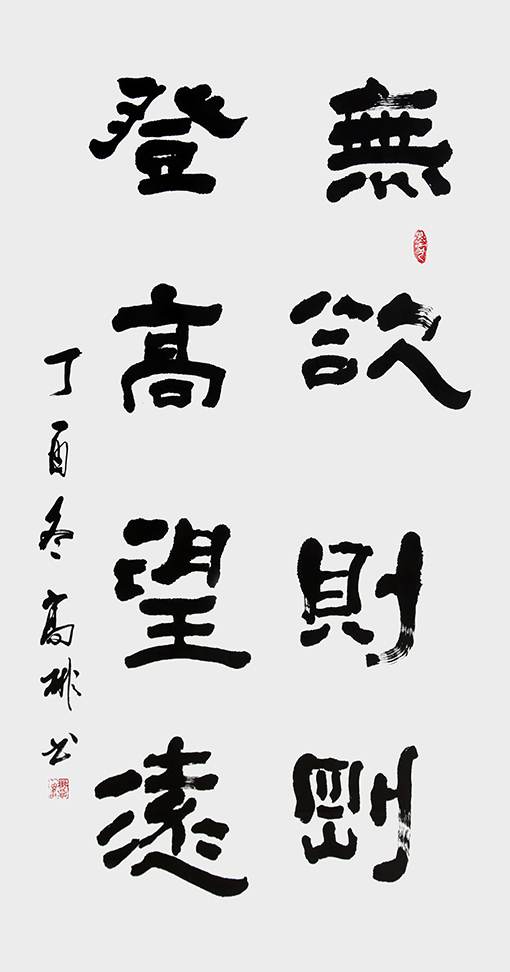 無欲則剛
登高望遠
丁酉冬高彬书